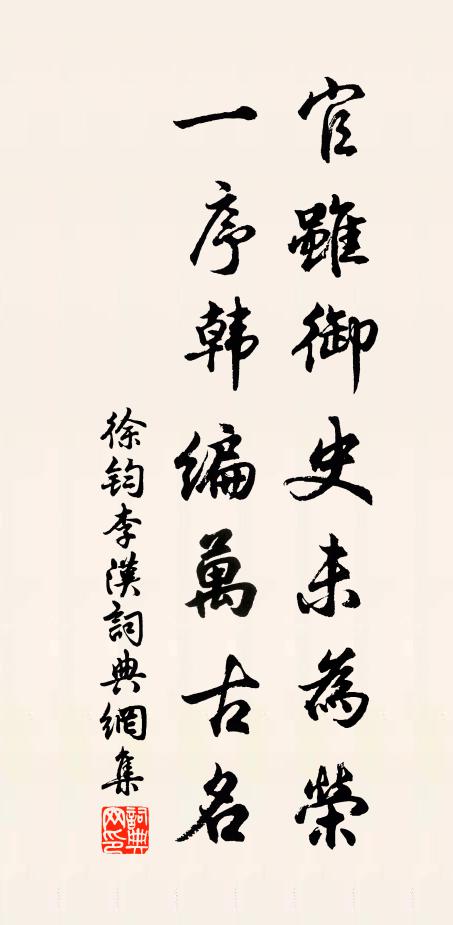 官雖御史未為榮
一序韩編萬古名
徐鈞李漢詞典網集
詞典網印